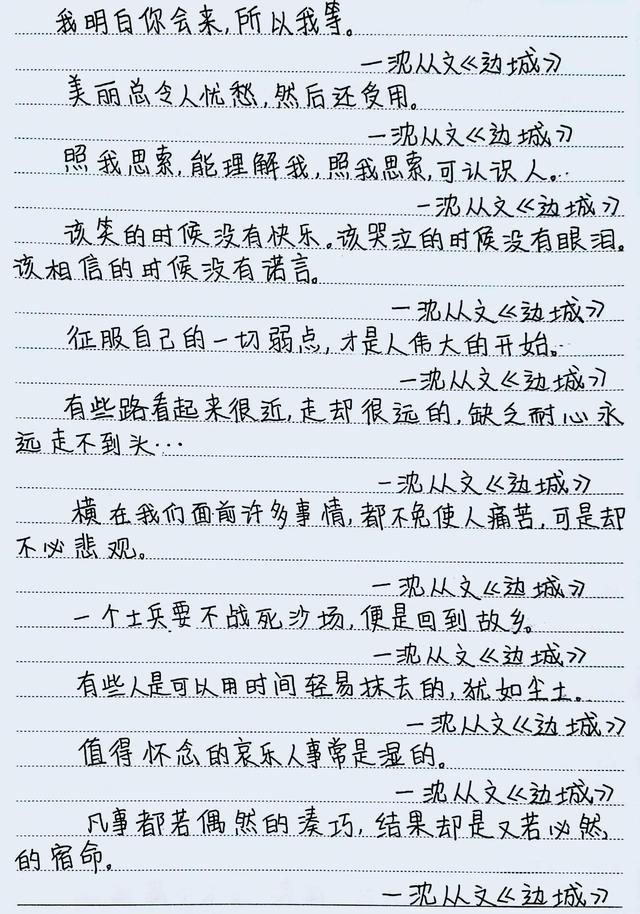 我明白你会来,所以我等。
—沈从文《边城》
美丽总令人忧愁,然后还受用。
—沈从文《边城》
照我思索,能理解我,照我思索,可认识人。
—沈从文《边城》
该笑的时候没有快乐。该哭泣的时候没有眼泪。
该相信的时候没有诺言。
—沈从文《边城》
征服自己的一切弱点,才是人伟大的开始。
—沈从文《边城》
有些路看起来很近,走却很远的,缺乏耐心永
远走不到头…
—沈从文《边城》
横在我们面前许多事情,都不免使人痛苦,可是却
不必悲观。
—沈从文《边城》
一个士兵要不战死沙场,便是回到故乡。
—沈从文《边城》
有些人是可以用时间轻易抹去的,犹如尘土。
—沈从文《边城》
值得怀念的哀乐人事常是湿的。
—沈从文《边城》
凡事都若偶然的凑巧,结果却是又若必然
的宿命。
—沈从文《边城》